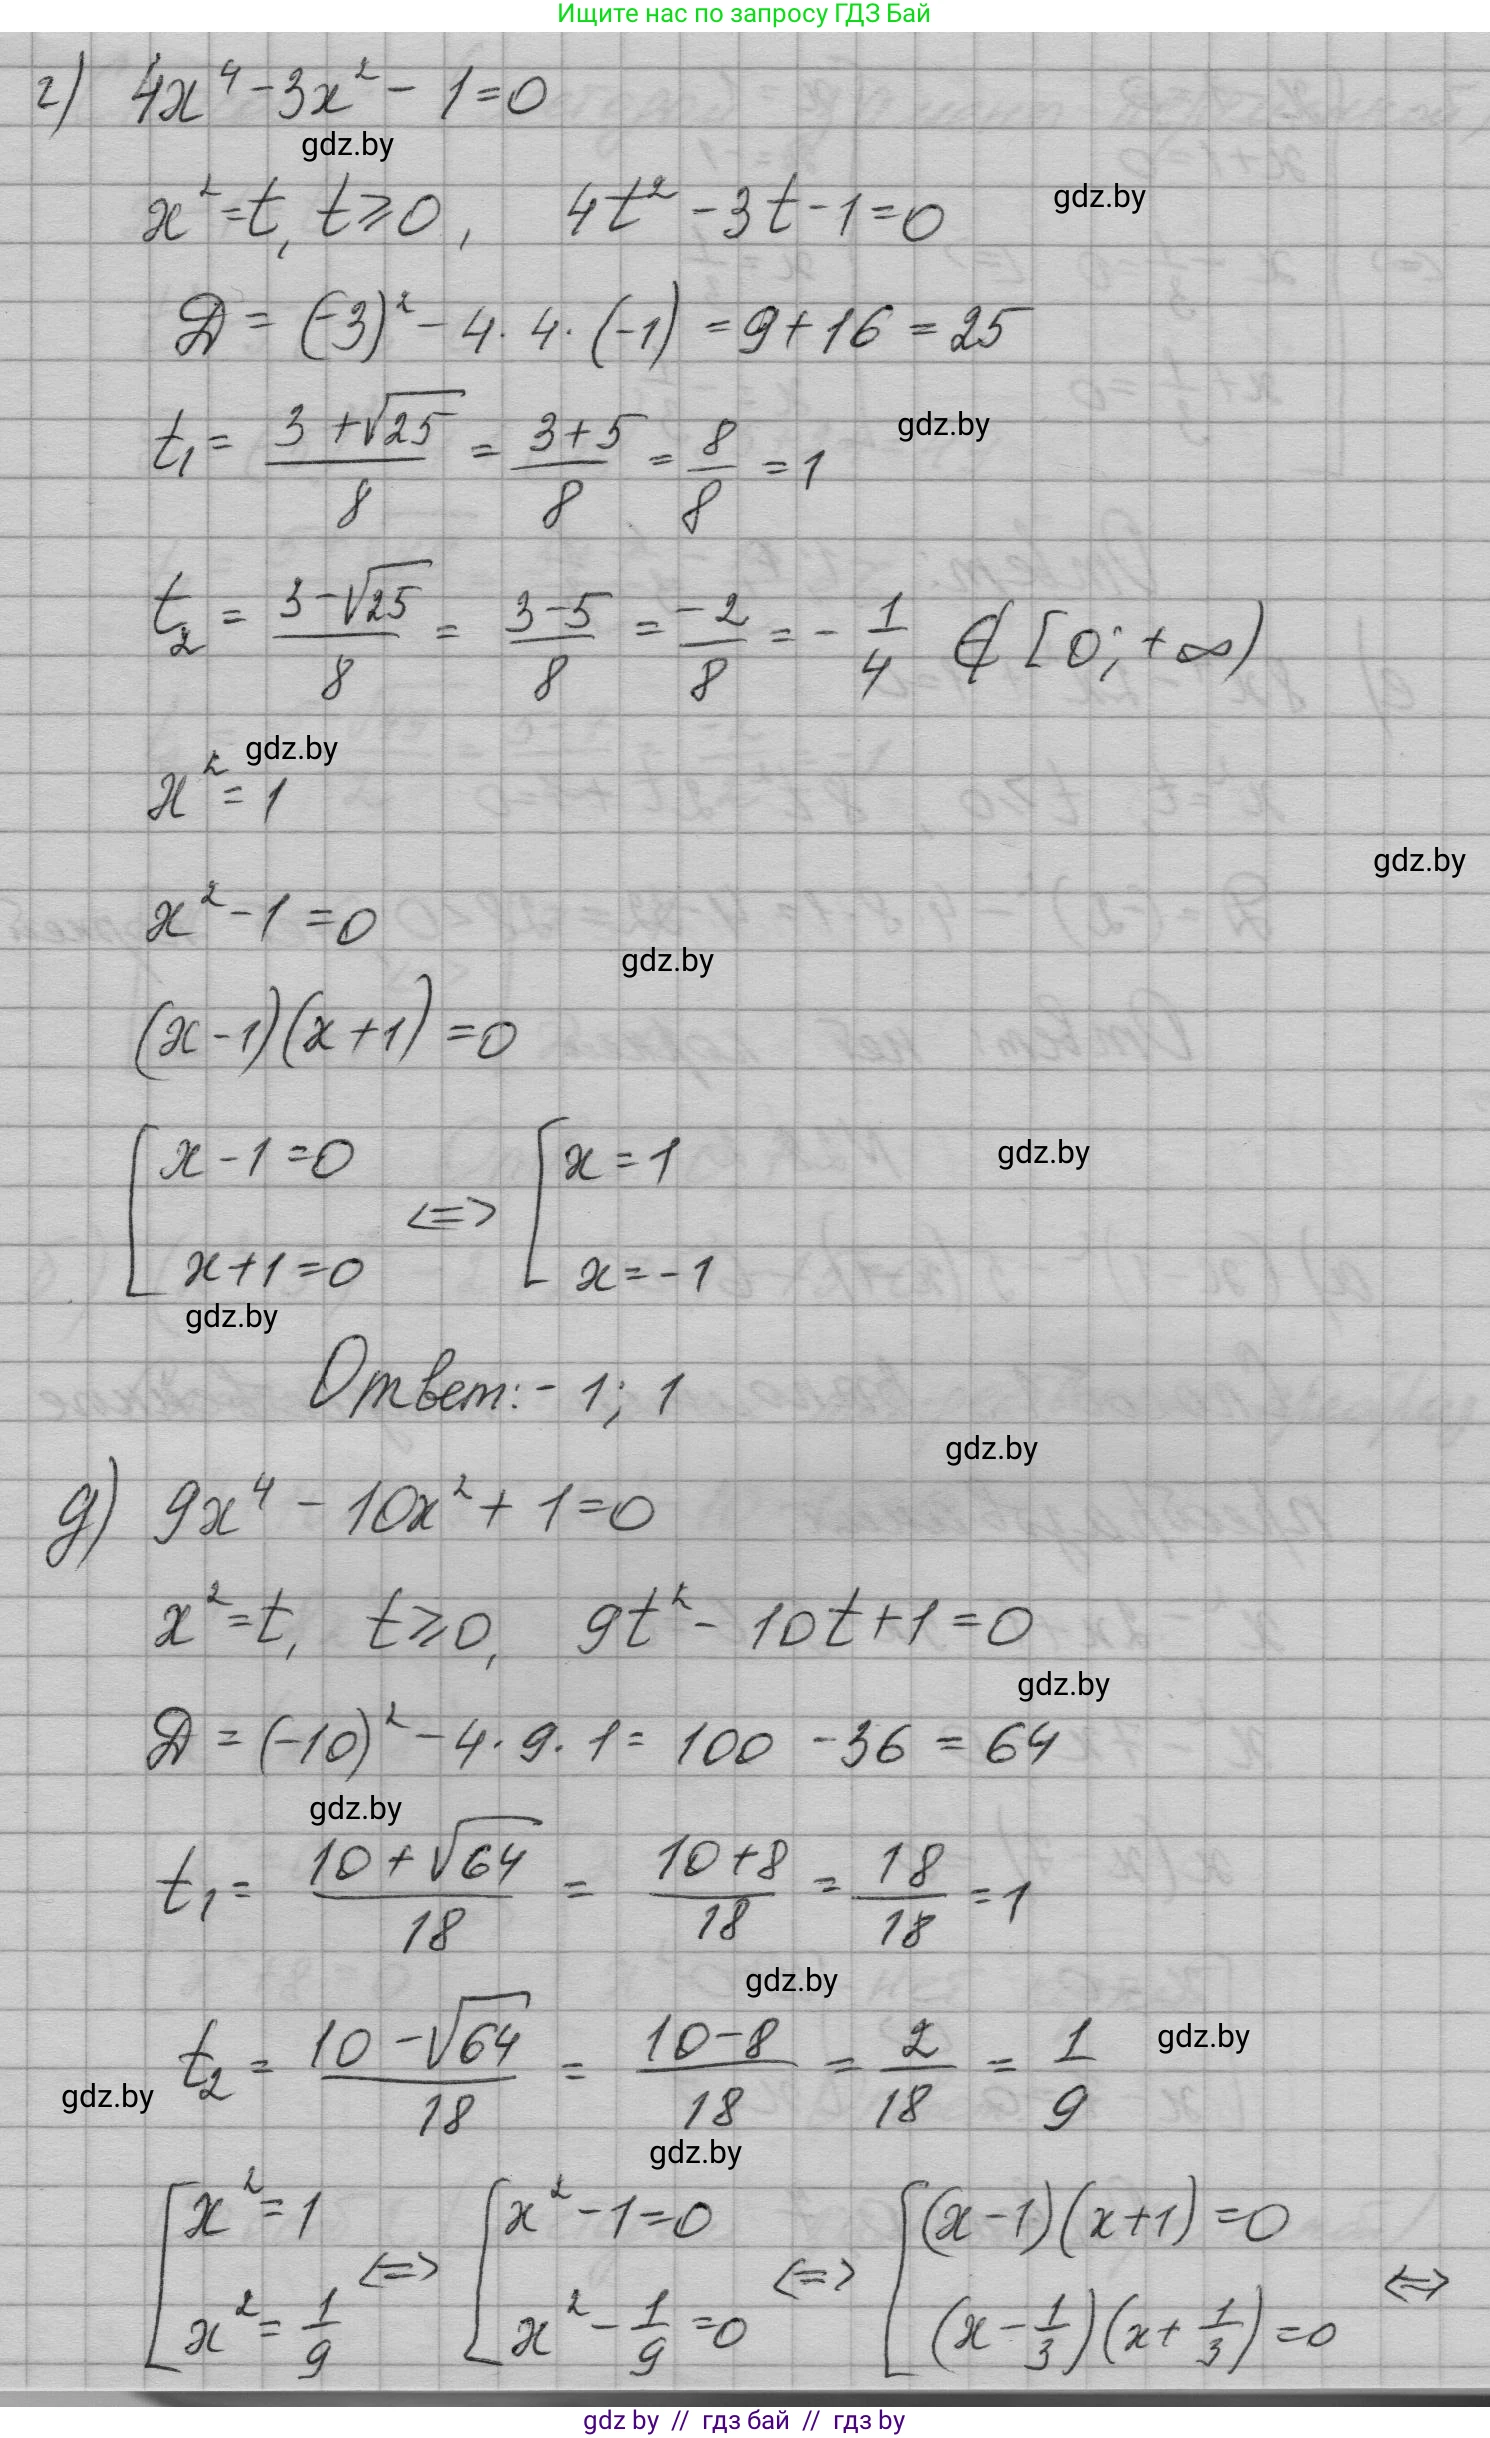 Ищите нас по запросу ГДЗ Бай
г) 4x⁴ - 3x² - 1 = 0
gdz.by
x² = t, t ⩾ 0, 4t² - 3t - 1 = 0
gdz.by
D = (-3)² - 4 · 4 · (-1) = 9 + 16 = 25
t₁ = (3 + √25)/8 = (3+5)/8 = 8/8 = 1
gdz.by
t₂ = (3 - √25)/8 = (3-5)/8 = -2/8 = -1/4 ∉ [0; +∞)
gdz.by
x² = 1
gdz.by
x² - 1 = 0
gdz.by
(x - 1)(x + 1) = 0
[ x - 1 = 0 <=> [ x = 1
gdz.by
x + 1 = 0 x = -1
gdz.by
Ответ: -1; 1
gdz.by
д) 9x⁴ - 10x² + 1 = 0
x² = t, t ⩾ 0, 9t² - 10t + 1 = 0
gdz.by
D = (-10)² - 4 · 9 · 1 = 100 - 36 = 64
gdz.by
t₁ = (10 + √64)/18 = (10+8)/18 = 18/18 = 1
gdz.by
t₂ = (10 - √64)/18 = (10-8)/18 = 2/18 = 1/9
gdz.by
gdz.by
gdz.by
[ x² = 1 <=> [ x² - 1 = 0 <=> [ (x-1)(x+1) = 0 <=>
x² = 1/9 x² - 1/9 = 0 (x - 1/3)(x + 1/3) = 0
gdz by // гдз бай // гдз by